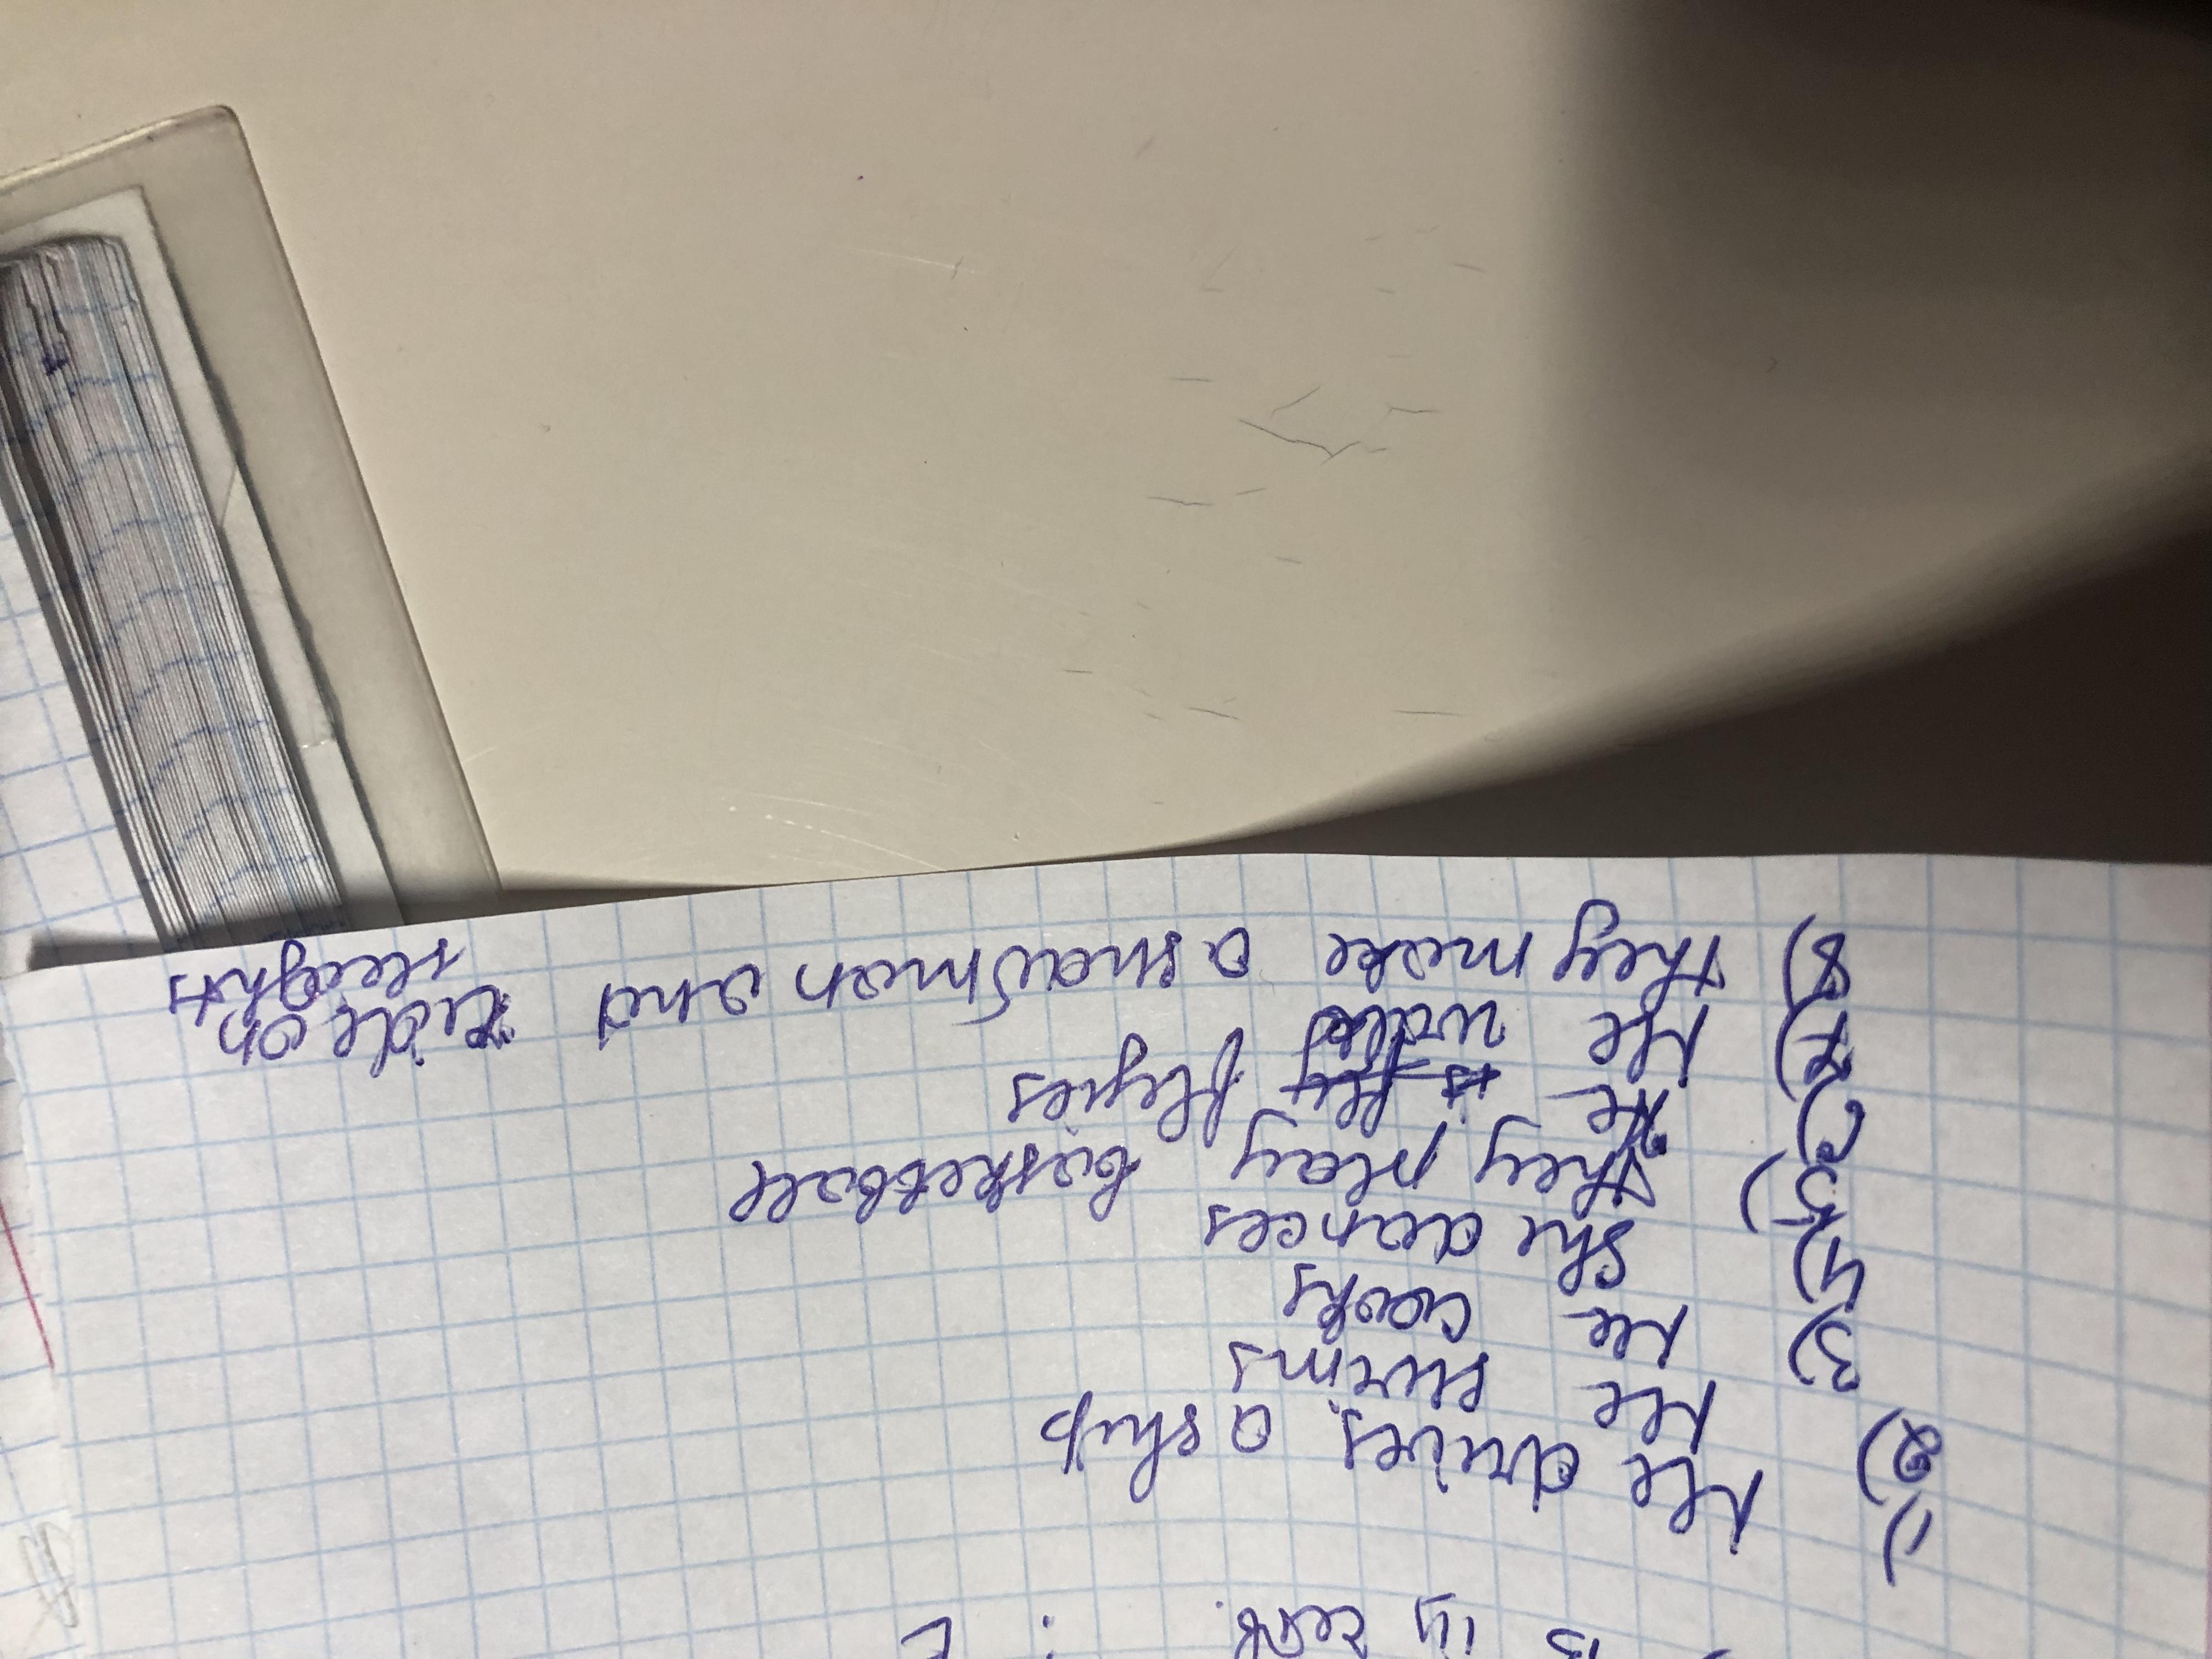 1) He drives a ship
2) He swims
3) He cooks
4) She dances
5) They play basketball
6) He flyies
7) He walk
8) They make a snowman and ride on sleights